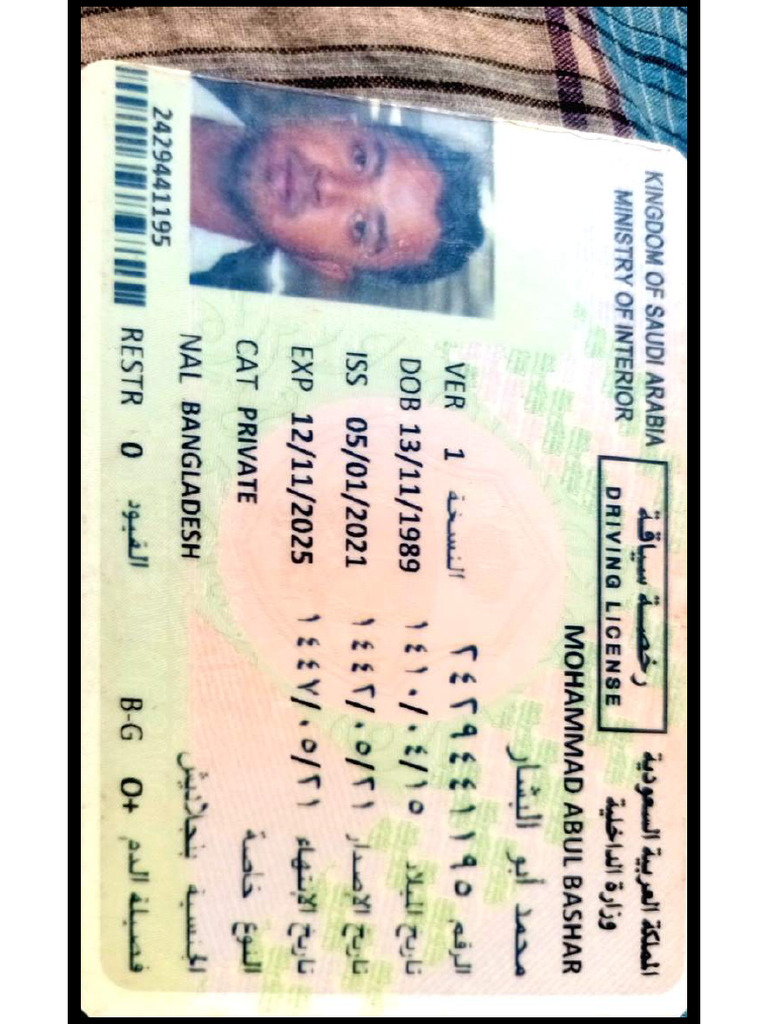 KINGDOM OF SAUDI ARABIA
MINISTRY OF INTERIOR
رخصة سياقة
DRIVING LICENSE
المملكة العربية السعودية
وزارة الداخلية
MOHAMMAD ABUL BASHAR
محمد أبو البشار
VER 1 النسخة ٢٤٢٩٤٤١١٩٥ الرقم
DOB 13/11/1989 ١٤١٠/٠٤/١٥ تاريخ الميلاد
ISS 05/01/2021 ١٤٤٢/٠٥/٢١ تاريخ الإصدار
EXP 12/11/2025 ١٤٤٧/٠٥/٢١ تاريخ الإنتهاء
CAT PRIVATE النوع خاصة
NAL BANGLADESH الجنسية بنجلاديش
2429441195
RESTR 0 القيود B-G O+ فصيلة الدم